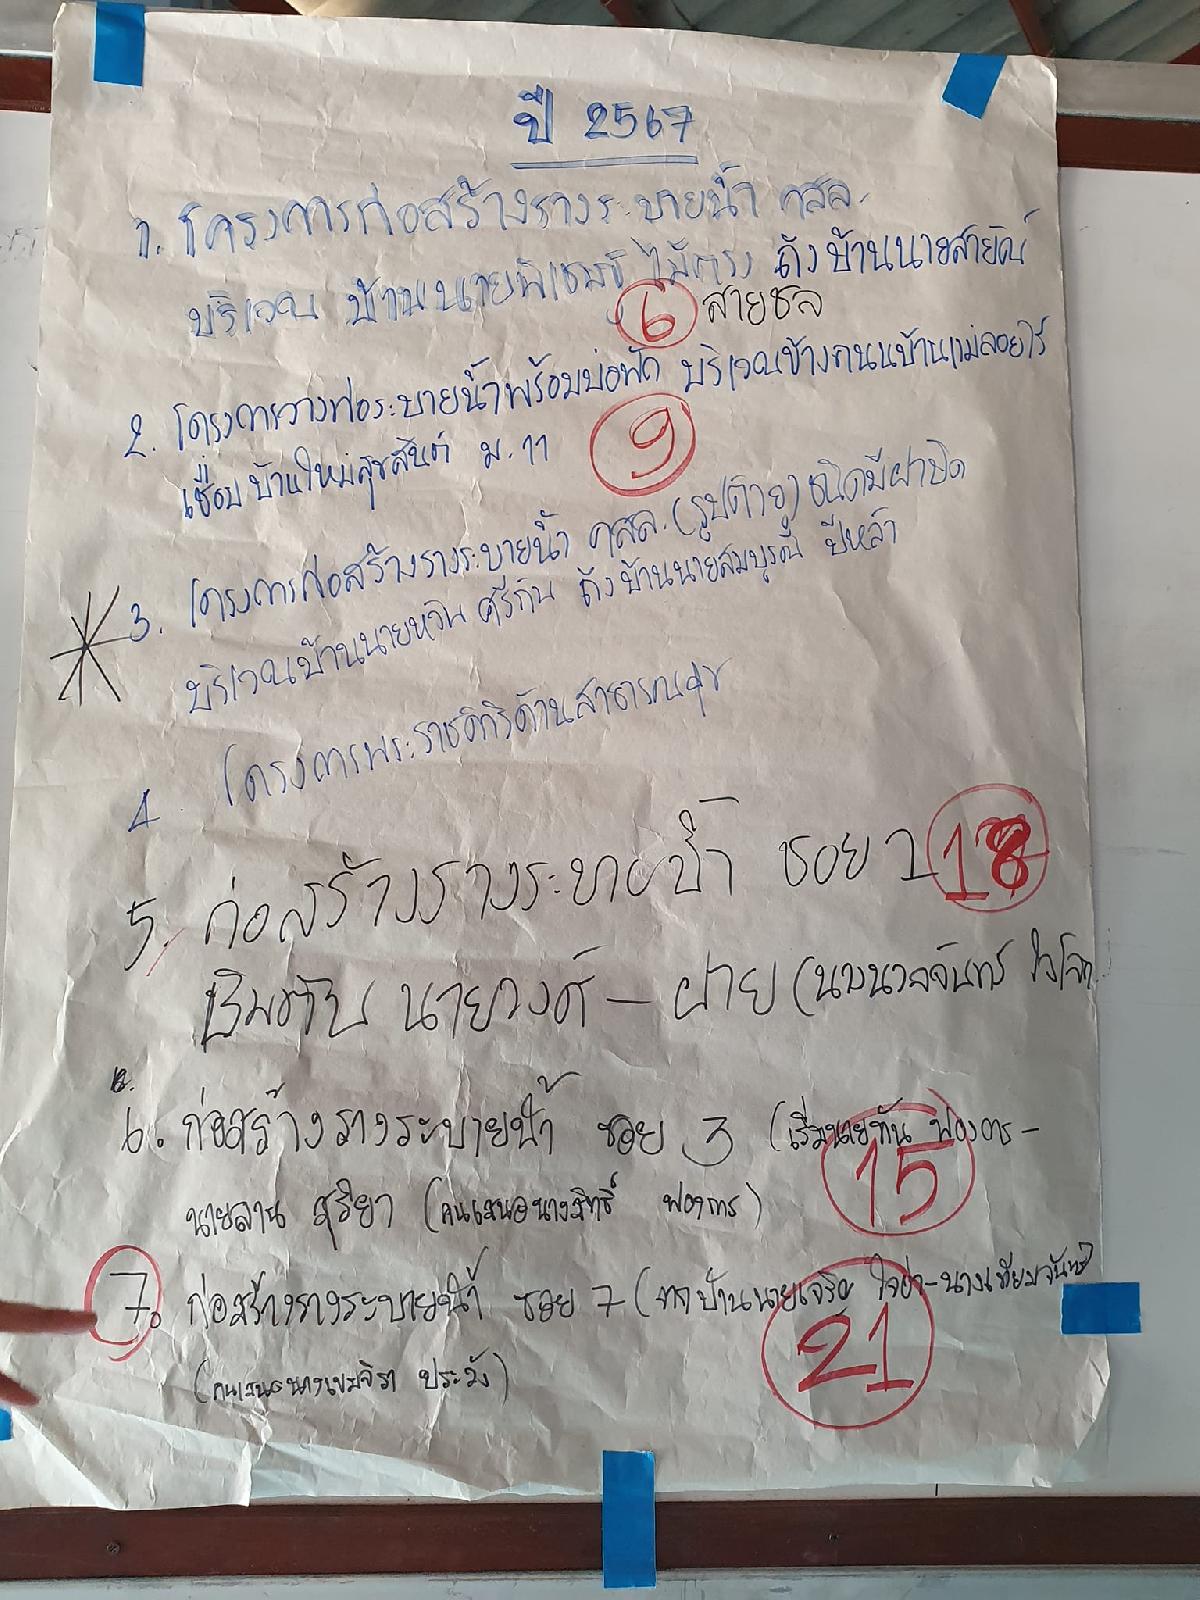 ปี 2567
1. โครงการก่อสร้างรางระบายน้ำ คสล.
บริเวณ บ้านนายพิเชษฐ์ ไม้ตรง ถึงบ้านนายสายัณ
6 สายชล
2. โครงการวางท่อระบายน้ำพร้อมบ่อพัก บริเวณข้างถนนบ้านแม่ลอยไร่
เชื่อม บ้านใหม่สุขสันต์ ม.11
9
3. โครงการก่อสร้างรางระบายน้ำ คสล. (รูปตัวยู) ชนิดมีฝาปิด
บริเวณบ้านนายหวัน ศรีกัน ถึงบ้านนายสมบูรณ์ ปีหล้า
4 โครงการพระราชดำริด้านสาธารณสุข
5. ก่อสร้างรางระบายน้ำ ซอย 1 18
นายวงค์ - ฝาย (นางนวลจันทร์
6. ก่อสร้างรางระบายน้ำ ซอย 3 (เริ่มนายทัน ฟองการ -
15
นายลาน สุริยา (คนเสนอนางสิทธิ์ ฟองการ)
7. ก่อสร้างรางระบายน้ำ ซอย 7 (จากบ้านนายเจริญ ใจยา - นางเทียมจันทร์
21
(คนเสนอ นางเขมจิรา ประวัง)